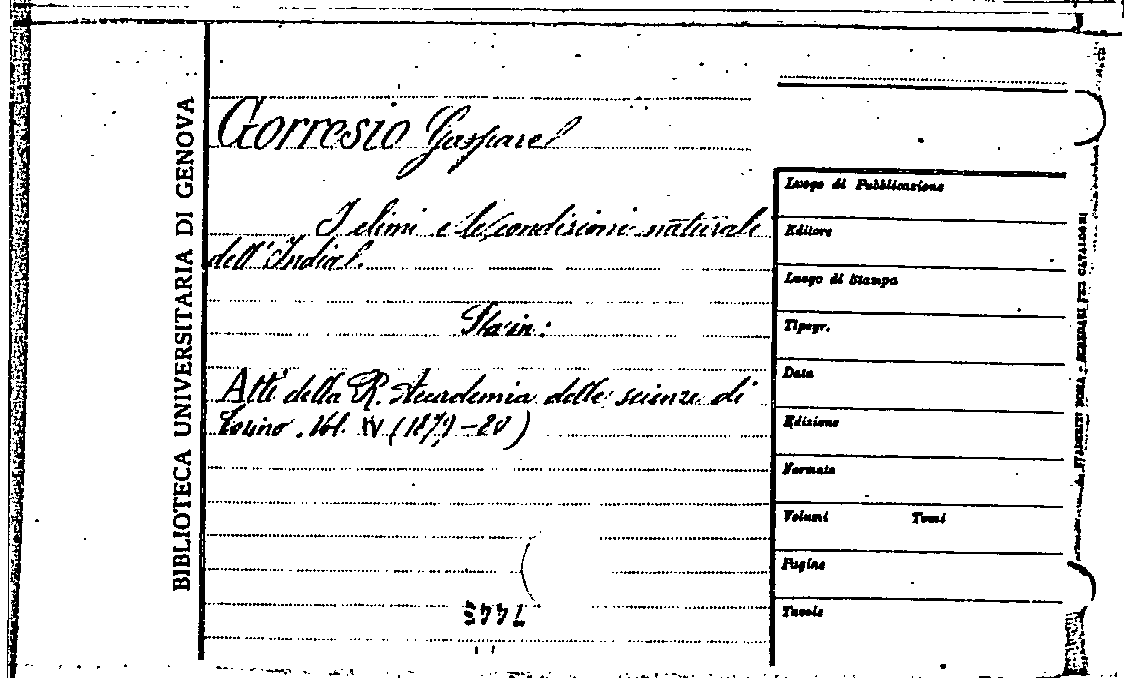 BIBLIOTECA UNIVERSITARIA DI GENOVA
Gorresio Gaspare
I climi e le condizioni naturale
dell'India.
Sta in:
Atti della R. Accademia delle scienze di
Torino. Vol. IV (1879-80)
7445
Luogo di Pubblicazione
Editore
Luogo di Stampa
Tipogr.
Data
Edizione
Formato
Volumi Tomi
Pagine
Tavole